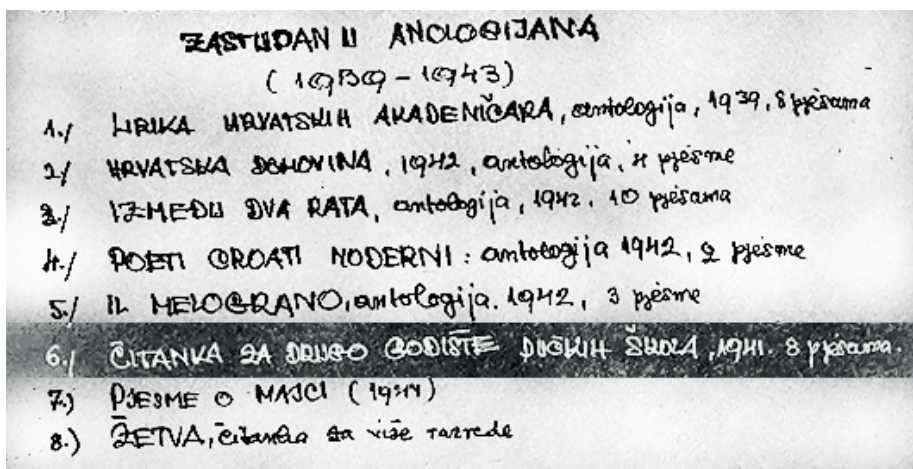 ZASTUDAN U ANOLOGIJAMA
(1939 - 1943)
1./ LIRIKA HRVATSKIH AKADEMIČARA, antologija, 1939, 8 pjesama
2/ HRVATSKA DOMOVINA, 1942, antologija, 4 pjesme
3./ IZMEĐU DVA RATA, antologija, 1942. 10 pjesama
4./ POETI CROATI MODERNI: antologija 1942, 2 pjesme
5./ IL MELOGRANO, antologija. 1942, 3 pjesme
6./ ČITANKA ZA DRUGO GODIŠTE PUČKIH ŠKOLA, 1941. 8 pjesama.
7.) PJESME O MAJCI (1944)
8.) ŽETVA, čitanka za više razrede